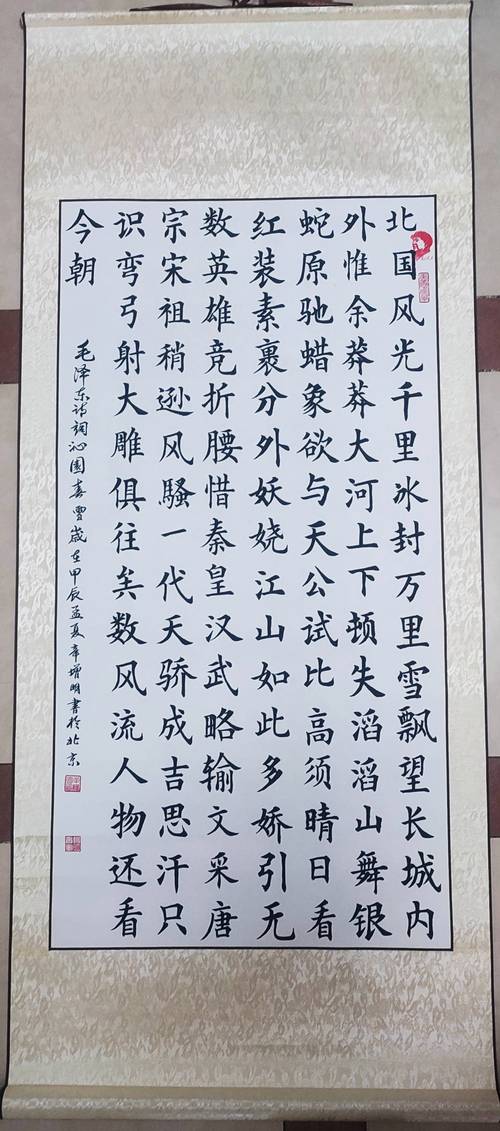 北国风光千里冰封万里雪飘望长城内
外惟余莽莽大河上下顿失滔滔山舞银
蛇原驰蜡象欲与天公试比高须晴日看
红装素裹分外妖娆江山如此多娇引无
数英雄竞折腰惜秦皇汉武略输文采唐
宗宋祖稍逊风骚一代天骄成吉思汗只
识弯弓射大雕俱往矣数风流人物还看
今朝
毛泽东诗词沁園春雪歲在甲辰孟夏辛增明書於北京